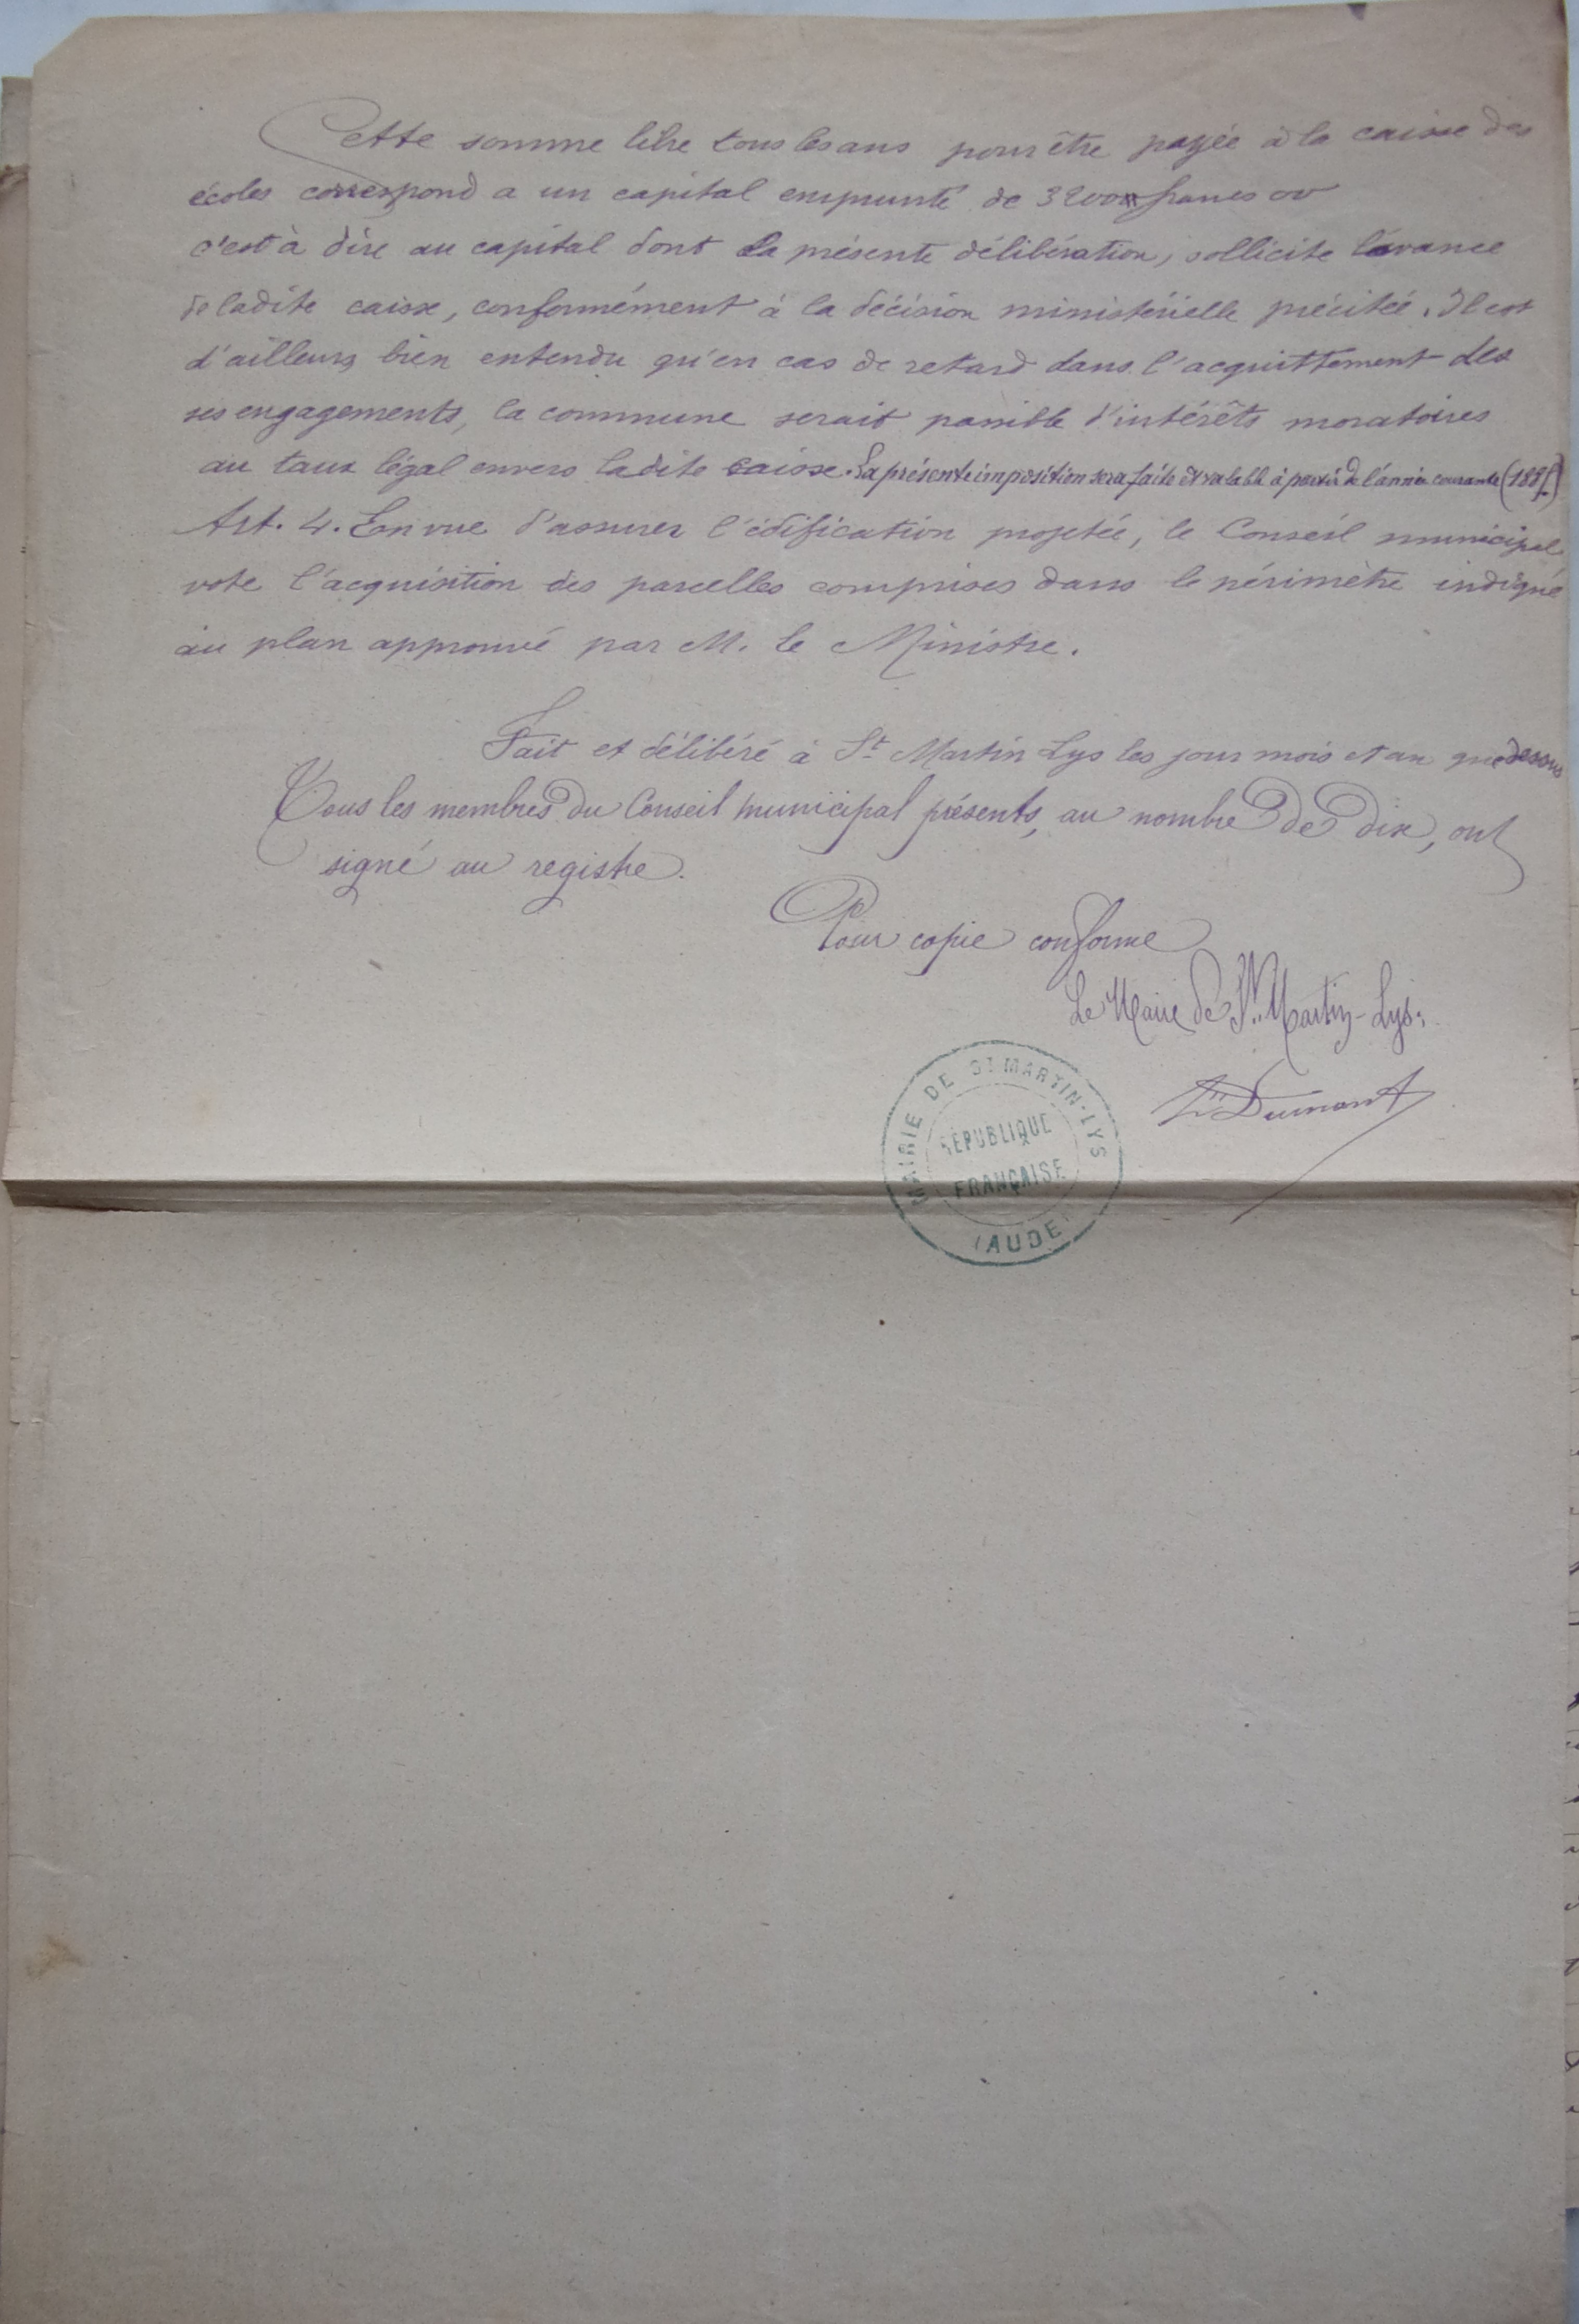 Cette somme libre tous les ans pour être payée à la caisse des
écoles correspond a un capital emprunté de francs
c'est à dire au capital dont la présente délibération, sollicite l'avance
de ladite caisse, conformément à la décision ministérielle précitée. Il est
d'ailleurs bien entendu qu'en cas de retard dans l'acquittement des
ses engagements, la commune serait passible d'intérêts moratoires
au taux légal envers ladite caisse. La présente imposition sera faite et valable à partir de l'année courante
Art. 4. En vue d'assurer l'édification projetée, le Conseil municipal
vote l'acquisition des parcelles comprises dans le périmètre indiqué
au plan approuvé par M. le Ministre.
Fait et délibéré à St Martin Lys les jour mois et an que dessus
Tous les membres du Conseil municipal présents, au nombre de dix, ont
signé au registre.
Pour copie conforme
Le Maire de St Martin-Lys,
Dumont
MAIRIE DE ST MARTIN-LYS
RÉPUBLIQUE
FRANÇAISE
(AUDE)